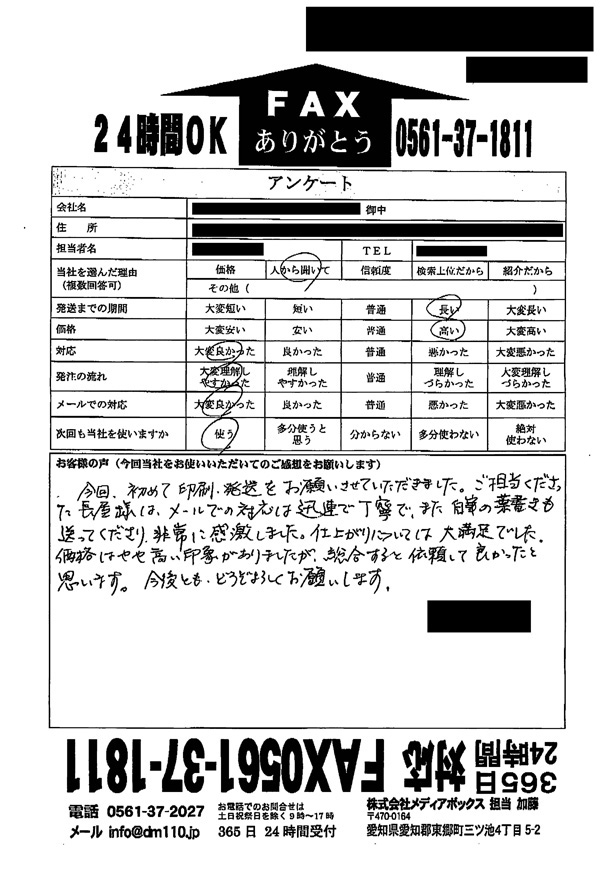 FAX
ありがとう
24時間OK
0561-37-1811
アンケート
会社名 御中
住 所
担当者名 TEL
当社を選んだ理由(複数回答可) 価格 人から聞いて 信頼度 検索上位だから 紹介だから
その他( )
発送までの期間 大変短い 短い 普通 長い 大変長い
価格 大変安い 安い 普通 高い 大変高い
対応 大変良かった 良かった 普通 悪かった 大変悪かった
発注の流れ 大変理解しやすかった 理解しやすかった 普通 理解しづらかった 大変理解しづらかった
メールでの対応 大変良かった 良かった 普通 悪かった 大変悪かった
次回も当社を使いますか 使う 多分使うと思う 分からない 多分使わない 絶対使わない
お客様の声(今回当社をお使いいただいてのご感想をお願いします)
今回、初めて印刷・発送をお願いさせていただきました。ご担当くださっ
た長屋様は、メールでの対応は迅速で丁寧で、また 葉書きも
送ってくださり、非常に感激しました。仕上がりについては大満足でした。
価格はやや高い印象がありましたが、総合すると依頼して良かったと
思います。今後とも、どうぞよろしくお願いします。
365日24時間対応 FAX0561-37-1811
電話 0561-37-2027
メール info@dm110.jp
お電話でのお問合せは
土日祝祭日を除く9時〜17時
365日24時間受付
株式会社メディアボックス 担当 加藤
〒470-0164
愛知県愛知郡東郷町三ツ池4丁目5-2